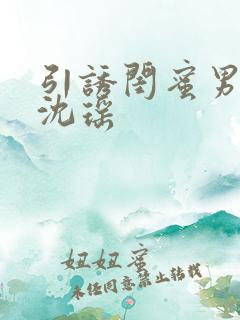 引誘閨蜜男
沈瑶
妞妞蜜
未经同意禁止转载